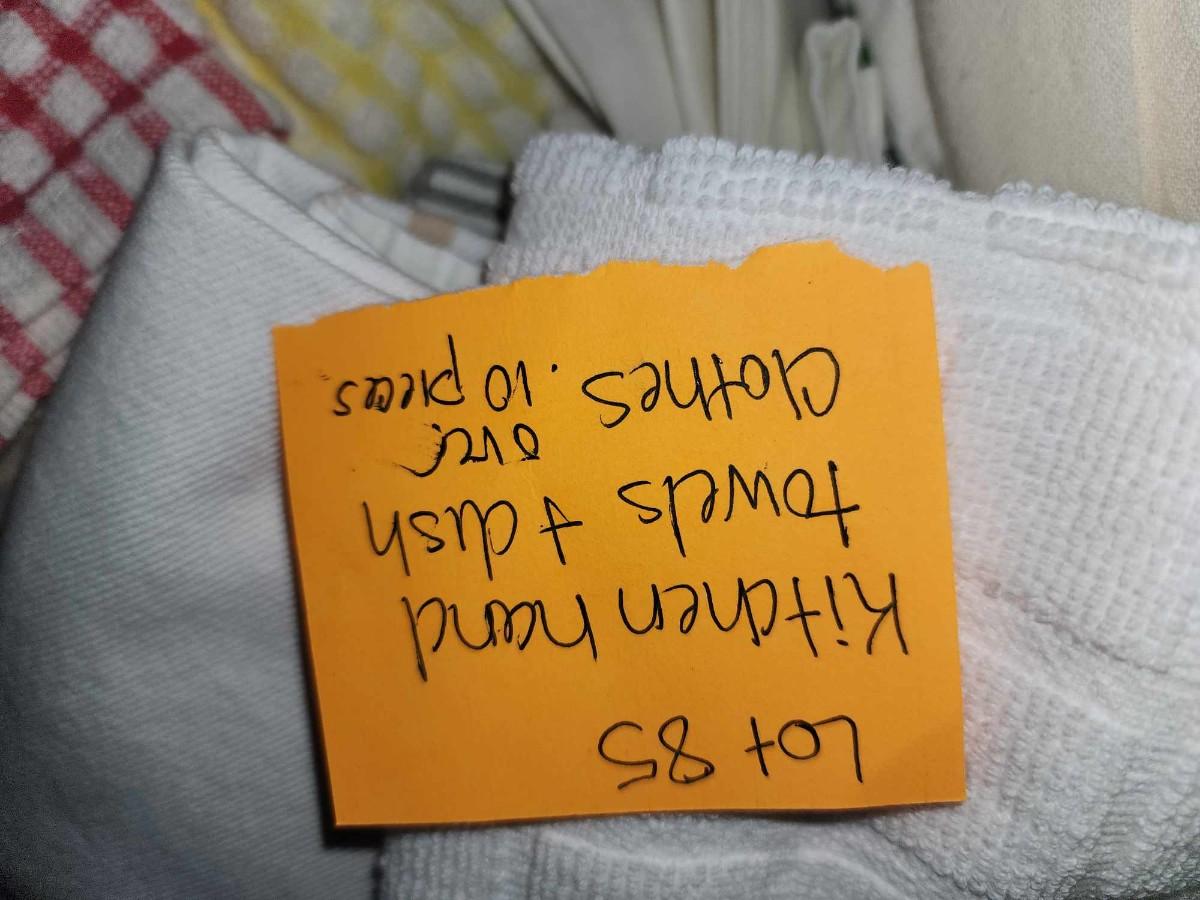 Lot 85
Kitchen hand
towels + dish
over
clothes. 10 pieces